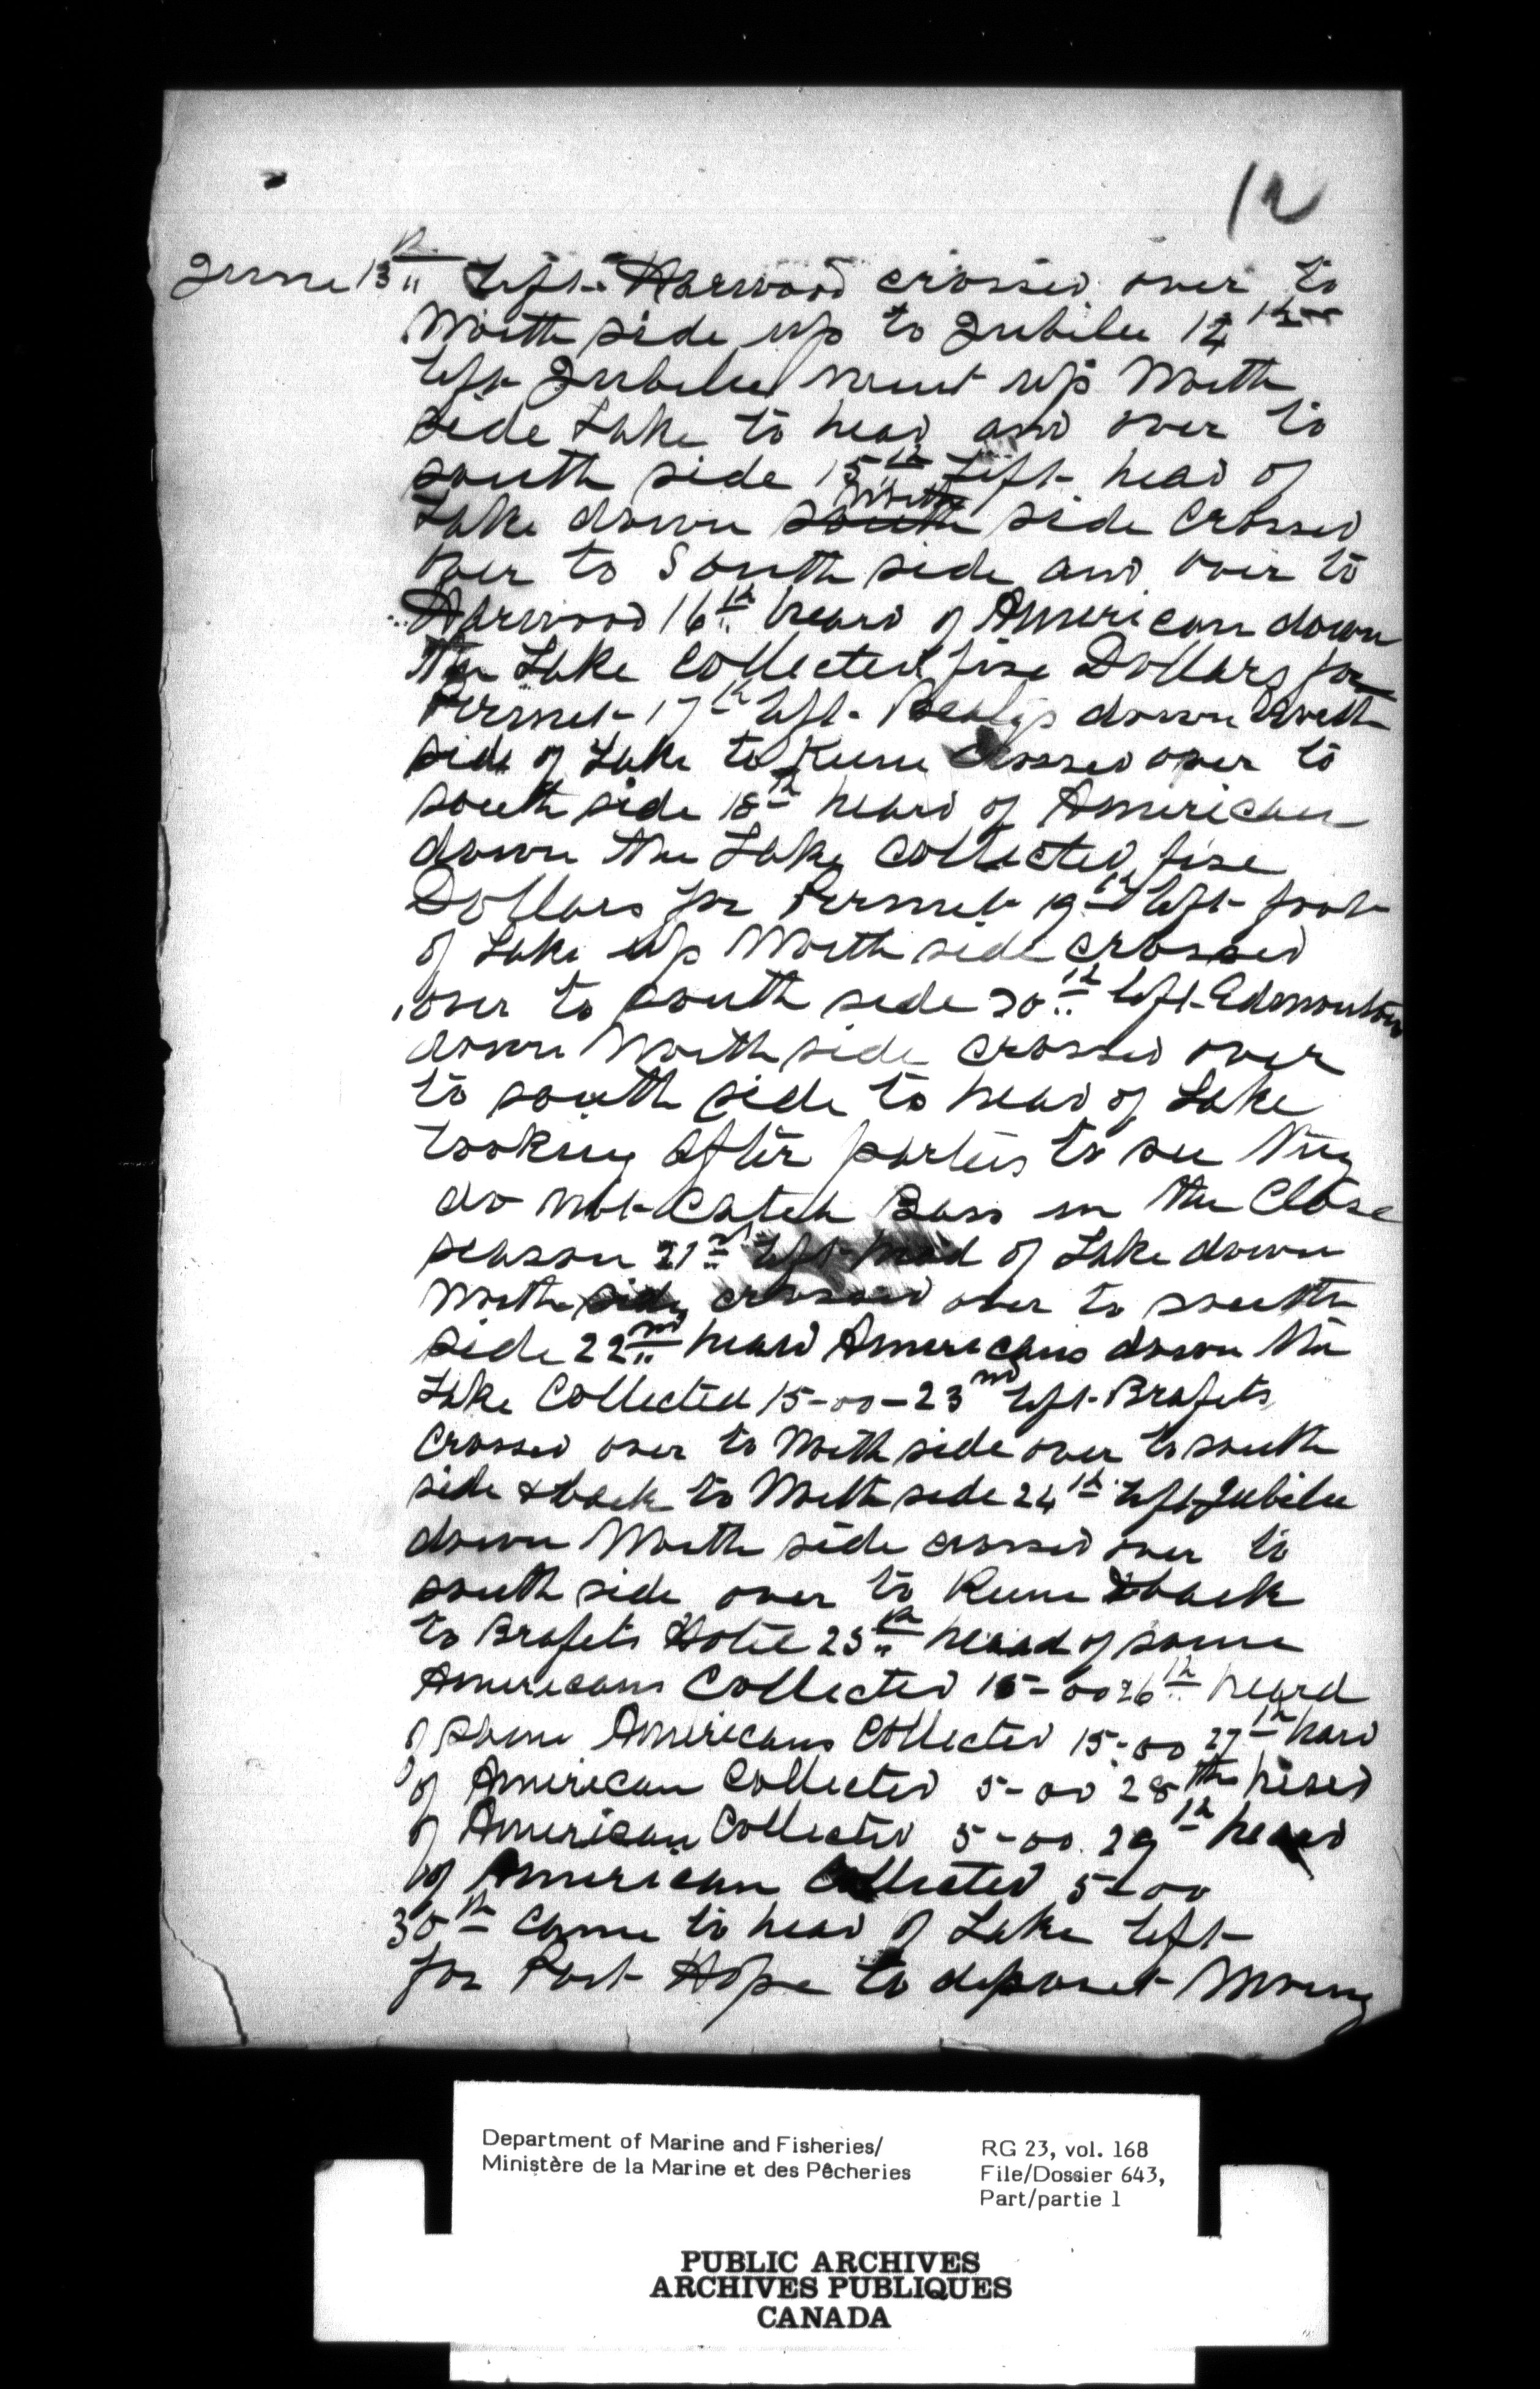 12
June 13th Left Harwood crossed over to
North side up to Jubilee 14th
left Jubilee went up North
side Lake to head and over to
south side 15th Left head of
North
Lake down south side crossed
over to South side and over to
Harwood 16th heard of American down
the Lake Collected five Dollars for
Permet 17th left down North
side of Lake to Keene crossed over to
south side 18th heard of American
down the Lake collected five
Dollars for Permet 19th left foot
of Lake up North side crossed
over to south side 20th left Edmonton
down North side crossed over
to south side to head of Lake
Looking after parties to see they
do not catch Bass in the Close
season 21st left head of Lake down
North side crossed over to south
side 22nd heard Americans down the
Lake Collected 15-00-23nd left Brafets
crossed over to North side over to south
side & back to North side 24th left Jubilee
down North side crossed over to
south side over to Keene & back
to Brafets Hotel 25th heard of some
Americans Collected 15-00 26th heard
of some Americans Collected 15-00 27th heard
of American Collected 5-00 28th heard
of American Collected 5-00. 29th heard
of American Collected 5-00
30th came to head of Lake left
for Port Hope to deposet Money
Department of Marine and Fisheries/
Ministère de la Marine et des Pêcheries
RG 23, vol. 168
File/Dossier 643,
Part/partie 1
PUBLIC ARCHIVES
ARCHIVES PUBLIQUES
CANADA